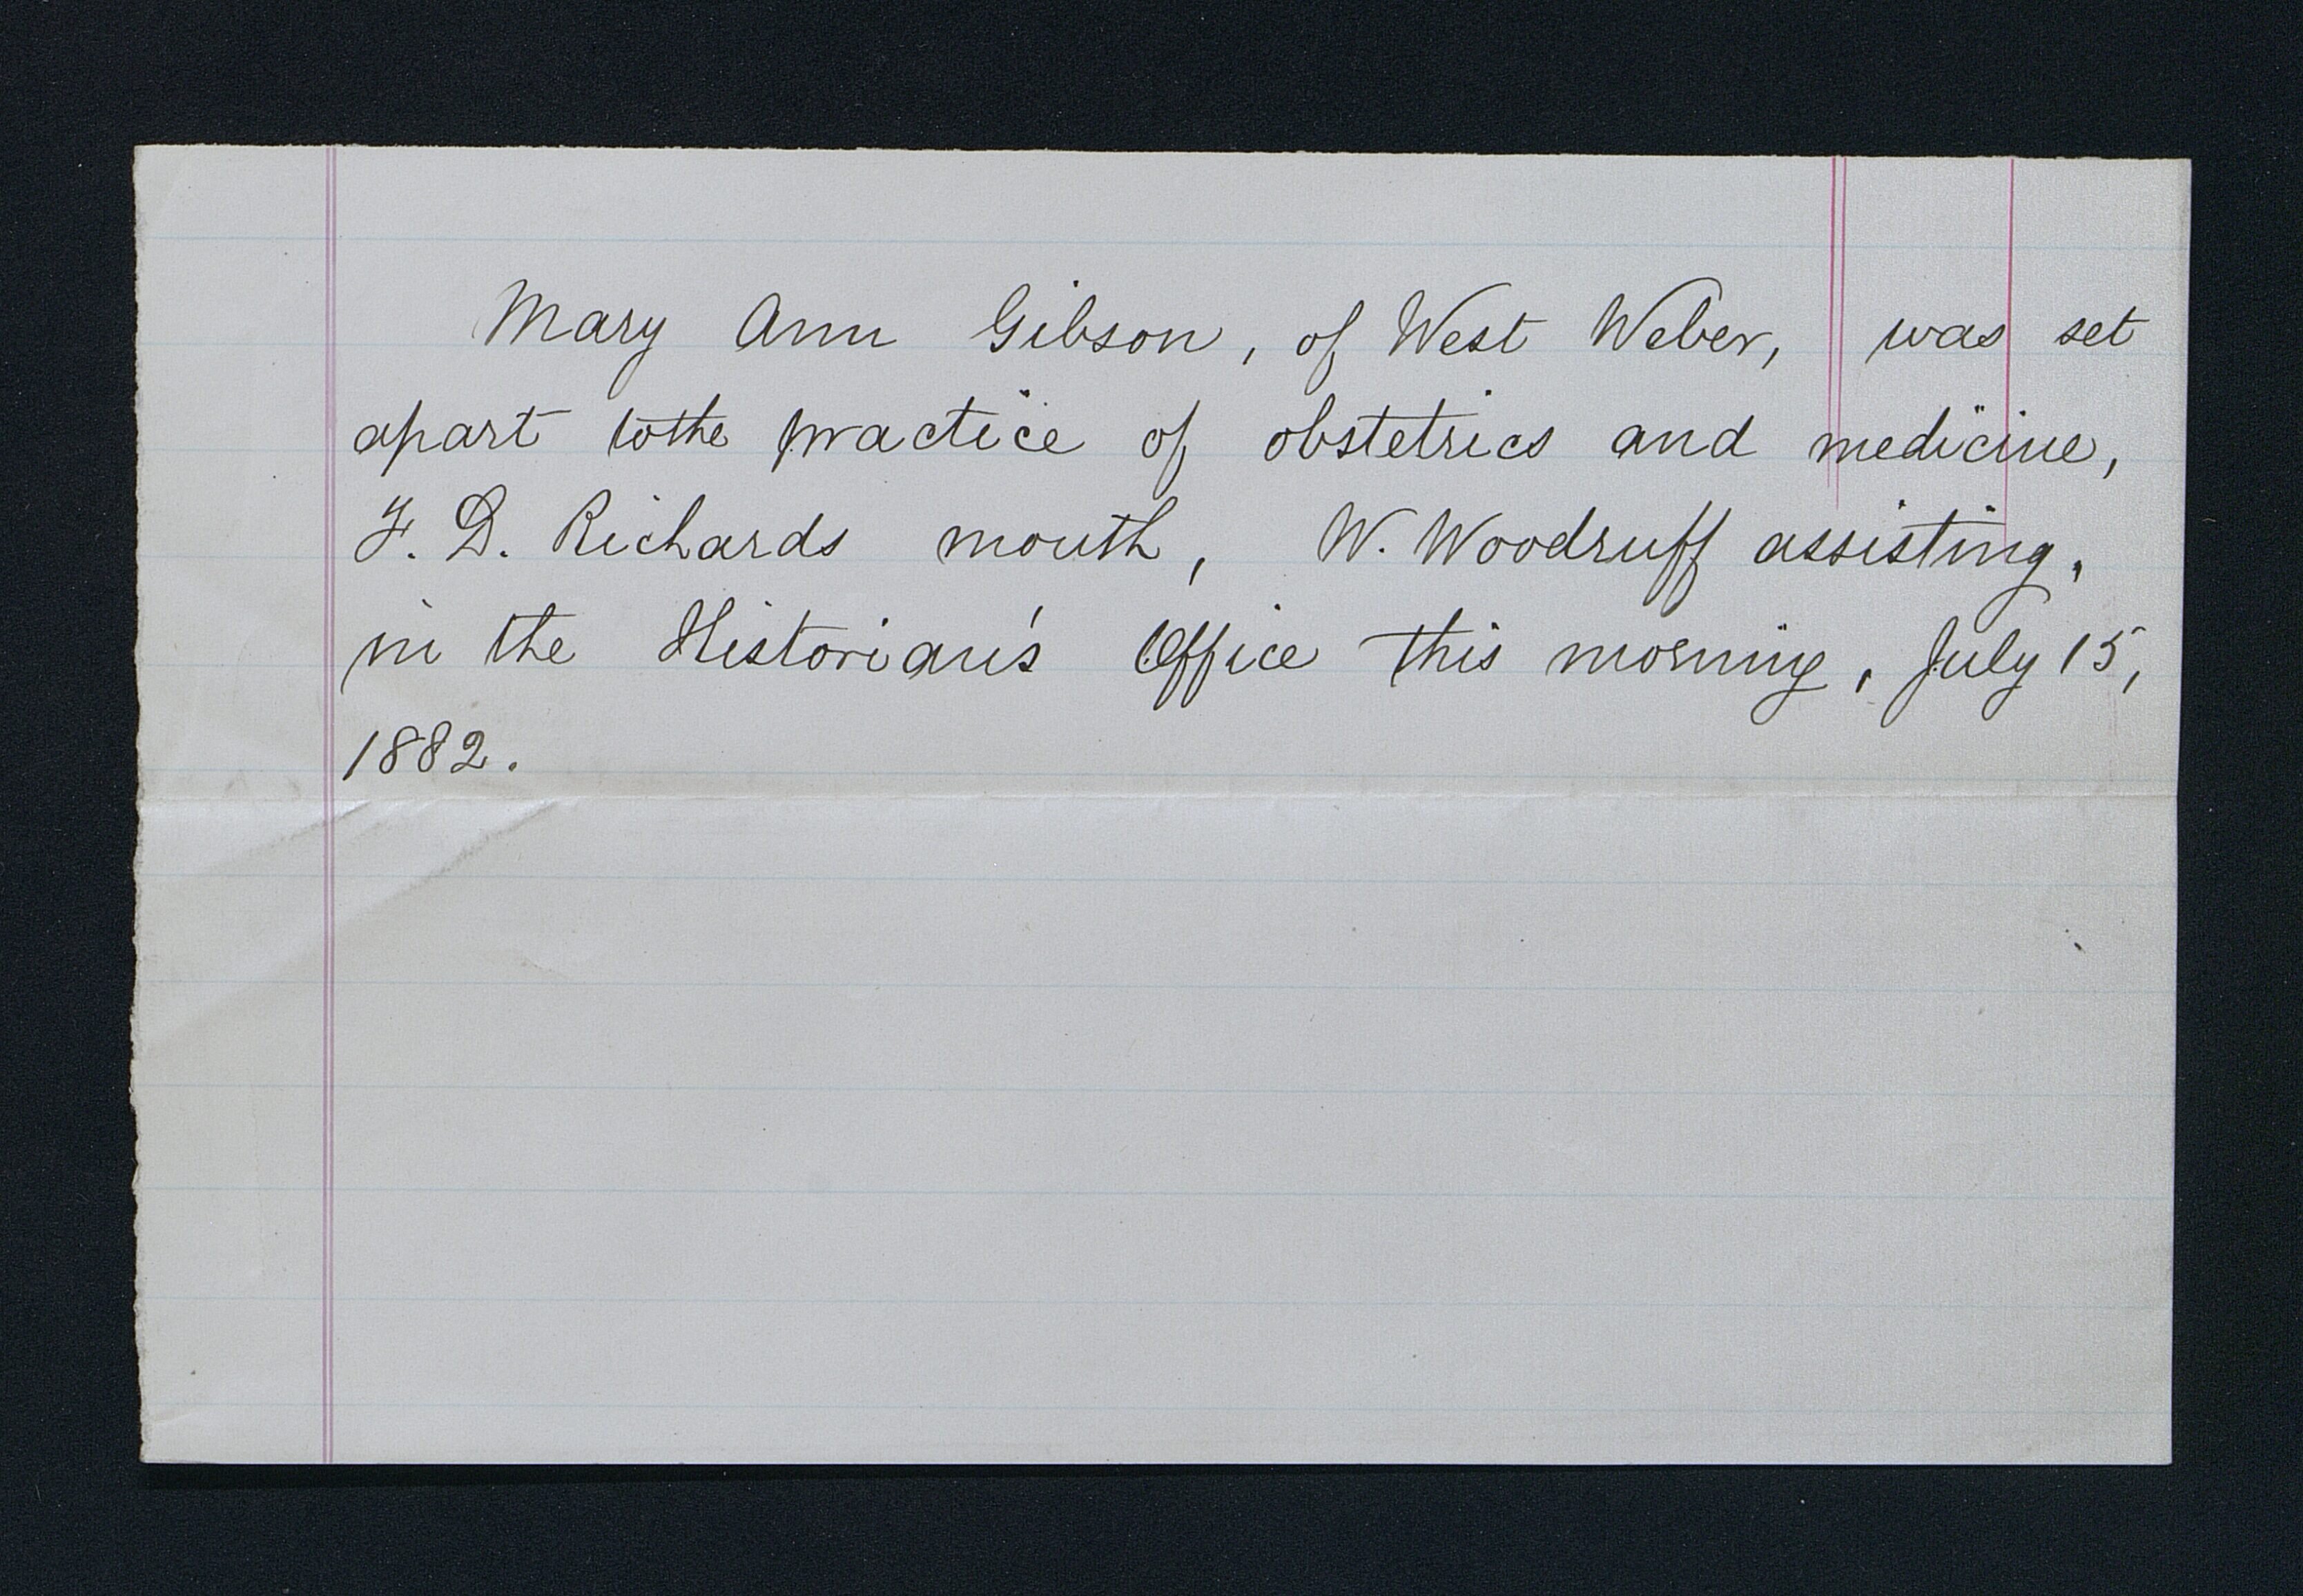 Mary Ann Gibson, of West Weber, was set
apart to the practice of obstetrics and medicine,
F. D. Richards mouth, W. Woodruff assisting,
in the Historian's Office this morning, July 15,
1882.